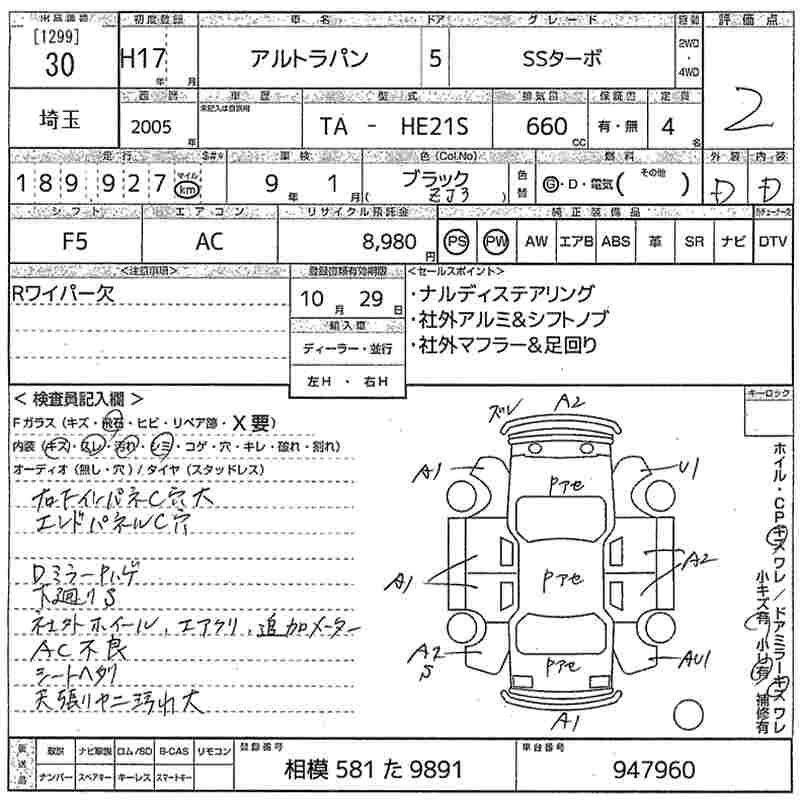 出品番号 初度登録 車名 ドア グレード 駆動 評価点
[1299]
30 H17 年 月 アルトラパン 5 SSターボ 2WD・4WD 2
西暦 車歴 型式 排気量 保証書 定員
未記入は自家用
埼玉 2005 年 TA - HE21S 660 CC 有・無 4 名
走行 車検 色(Col.No) 燃料 外装 内装
189927 マイル km 9 年 1 月 ブラック 色替 G・D・電気( その他 ) D D
( ZJ3 )
シフト エアコン リサイクル預託金 純正装備品
F5 AC 8,980 円 PS PW AW エアB ABS 革 SR ナビ DTV
<注意事項> 登録書類有効期限 <セールスポイント>
Rワイパー欠 10 月 29 日 ・ナルディステアリング
輸入車 ・社外アルミ&シフトノブ
ディーラー・並行 ・社外マフラー&足回り
左H・右H
<検査員記入欄> キーロック
Fガラス(キズ・飛石・ヒビ・リペア跡・X要)
内装(キズ・スレ・汚れ・シミ・コゲ・穴・キレ・破れ・割れ)
オーディオ(無し・穴)/タイヤ(スタッドレス)
フロントインパネC穴大
エンドパネルC穴
Dミラーハゲ
下廻りS
社外ホイール、エアクリ、追加メーター
AC不良
シートヘタリ
天張りヤニ汚れ大
ズレ A2
A1 Pアセ U1
A1 Pアセ A2
A2 S Pアセ AU1
A1
ホイール・CPキズワレ/ドアミラーキズワレ
小キズ有 小U有 補修有
後送品 取説 ナビ取説 ロム/SD B-CAS リモコン 登録番号 車台番号
ナンバー スペアキー キーレス スマートキー 相模 581 た 9891 947960